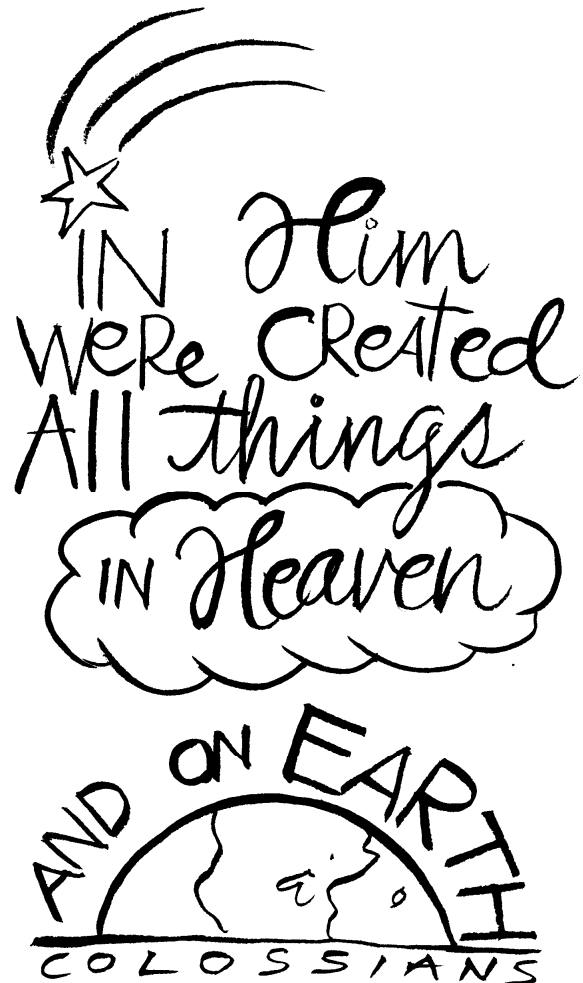 IN Him
WeRe CReAted
All things
IN Heaven
AND ON EARTH
COLOSSIANS